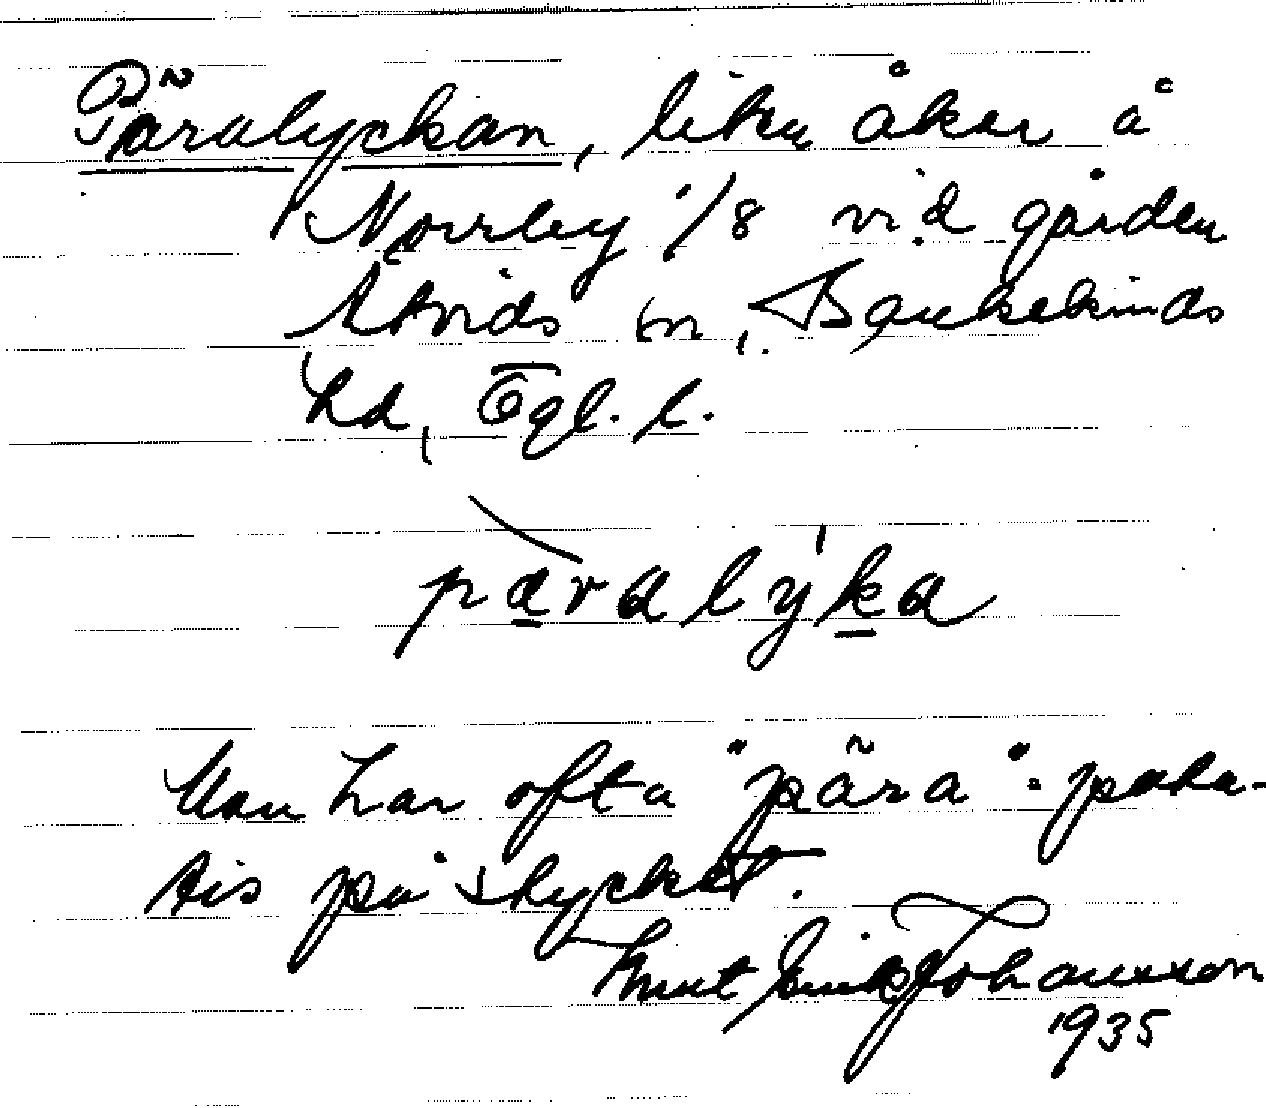 Päralyckan, liten åker å
Norrby 1/8 vid gården
Åtvids sn, Bankekinds
hd, Ögl. l.
päralyka
Man har ofta "pära" = pota-
tis på stycket.
Knut Erik Johansson
1935